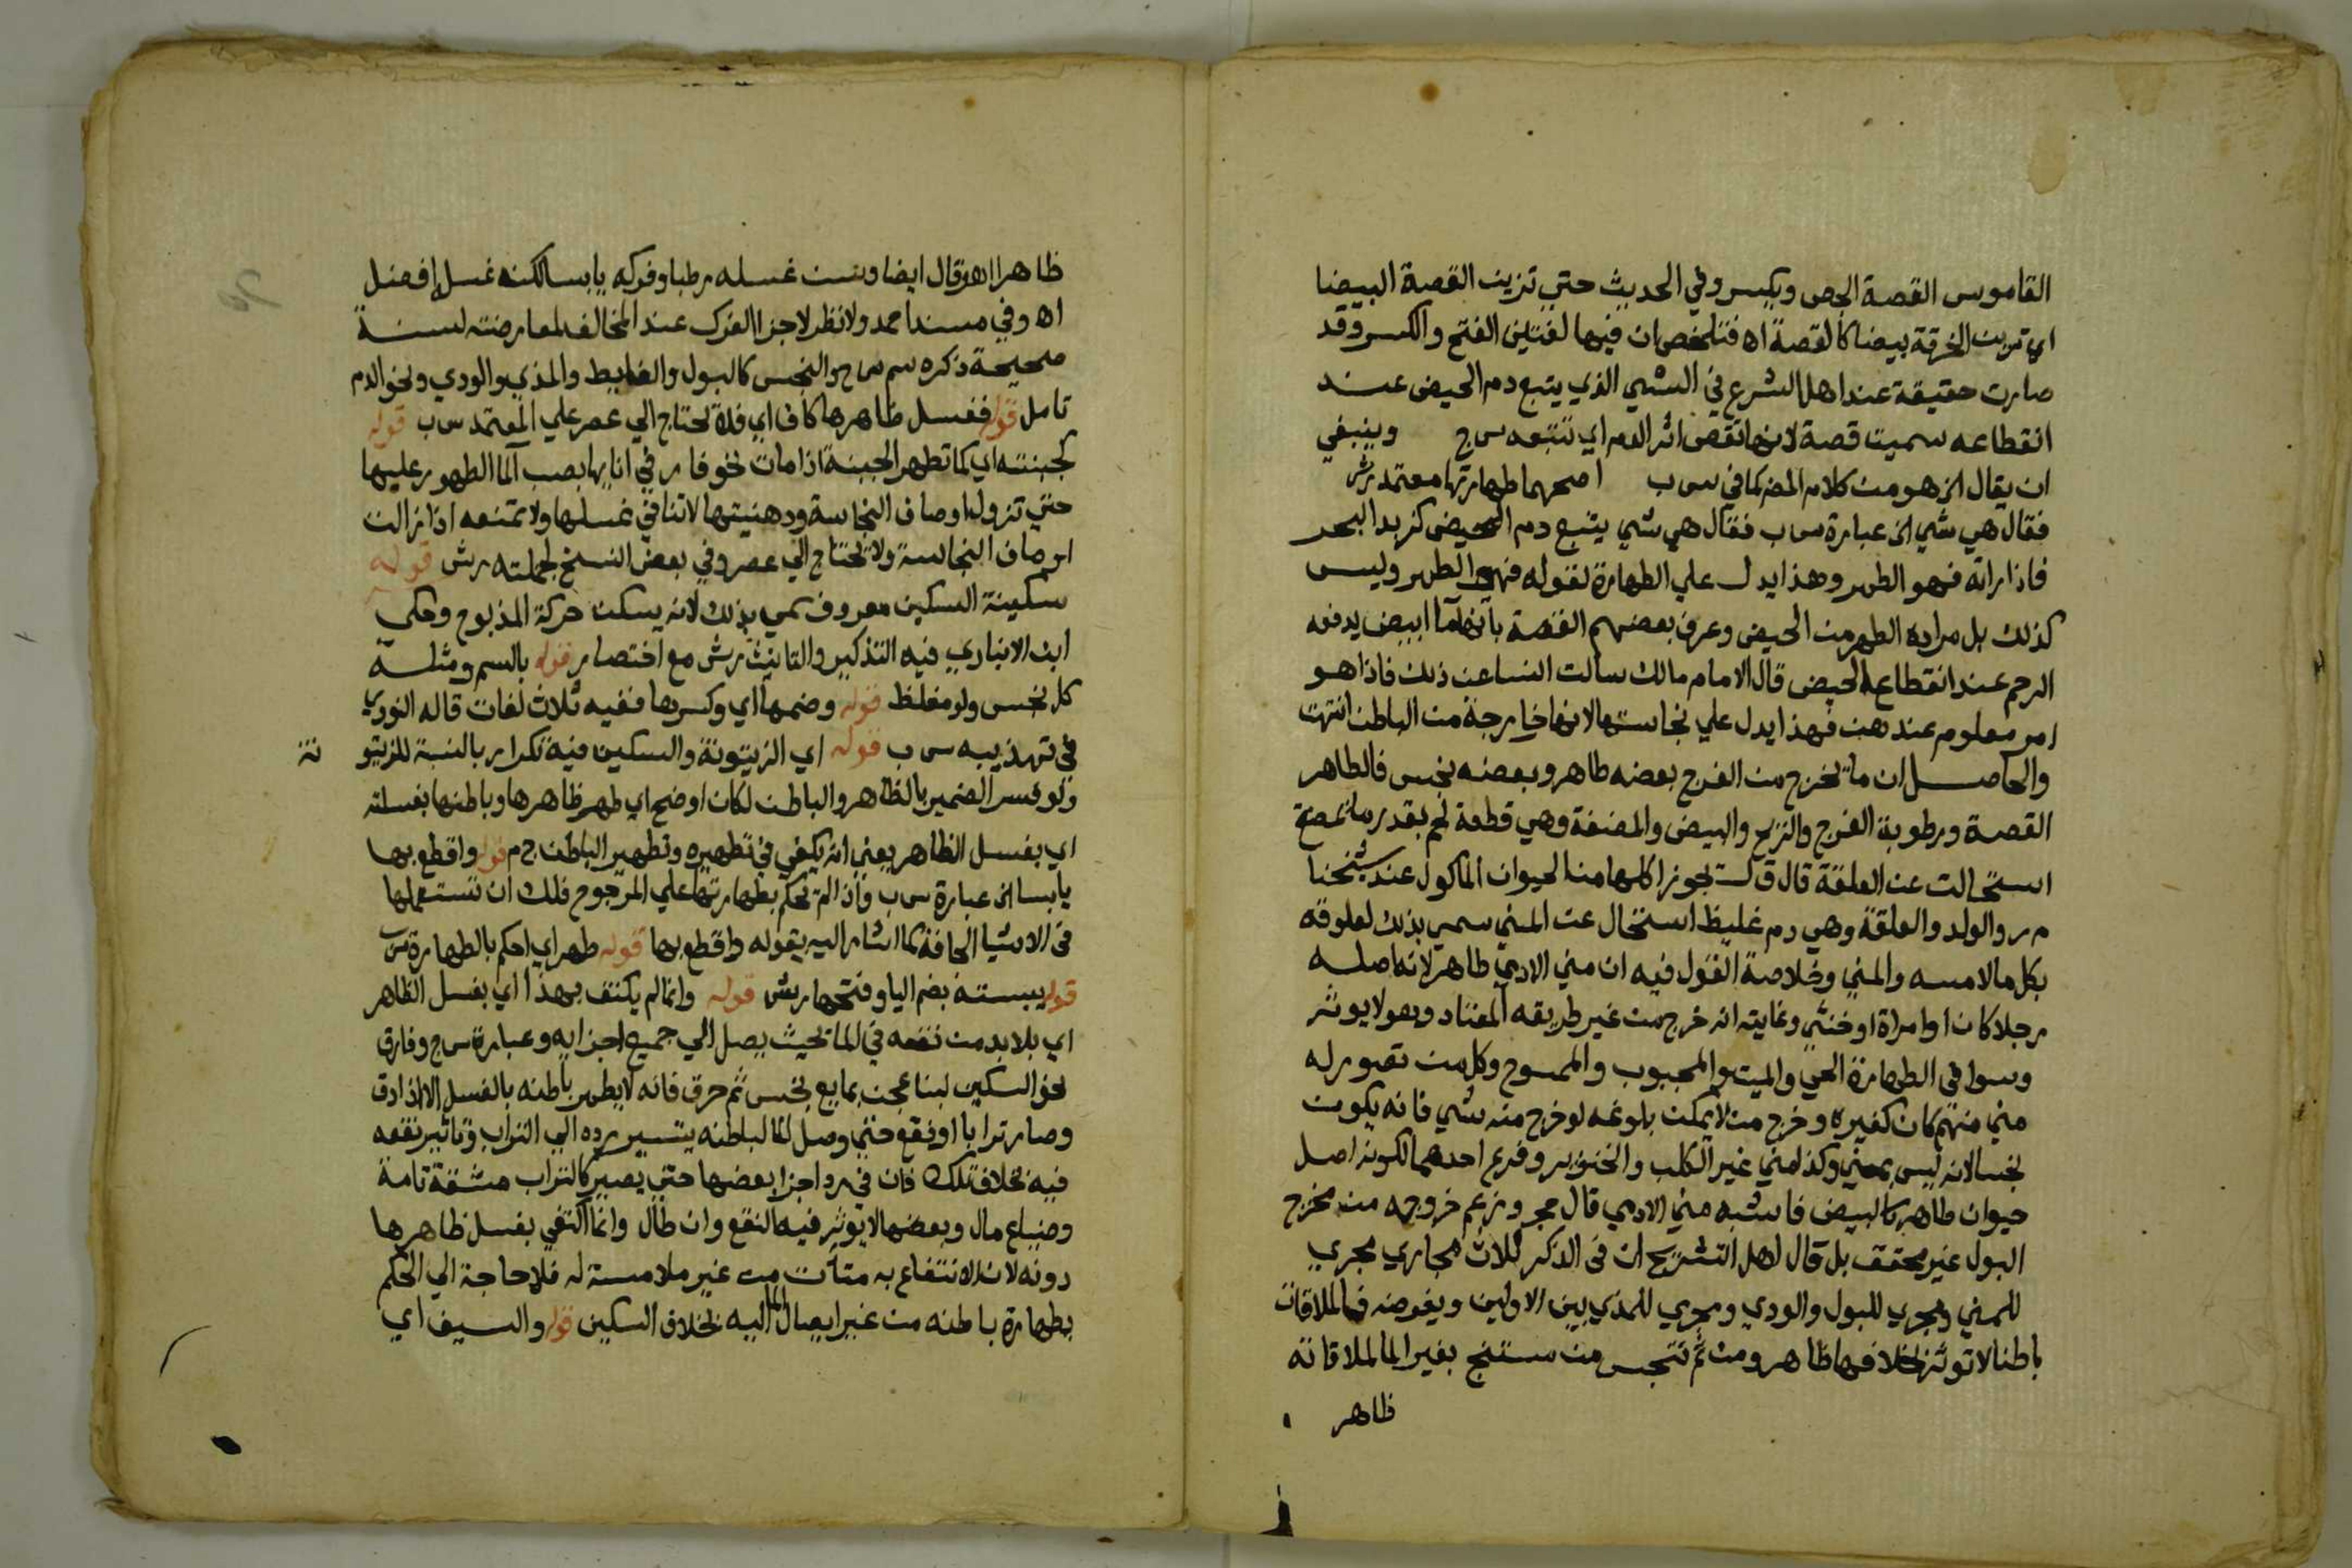 القاموس القصة الجص ويكسر وفي الحديث حتي ترين القصة البيضا
اي ترين الخرقة بيضا كالقصة اه فتلخص ان فيها لغتين الفتح والكسر وقد
صارت حقيقة عند اهل الشرع في الشي الذي يتبع دم الحيض عند
انقطاعه سميت قصة لانها تقص اثر الدم اي تتبعه س ج وينبغي
ان يقال الخ هو من كلام المض كما في س ب اصحهما طهارتها معتمد رش
فقال هي شي الخ عبارة س ب فقال هي شي يتبع دم الحيض كزبد البحر
فاذا راته فهو الطهر وهذا يدل علي الطهارة لقوله فهو الطهر وليس
كذلك بل مراده الطهر من الحيض وعرف بعضهم القصة بانها ما ابيض يدفعه
الرحم عند انقطاع الحيض قال الامام مالك سالت النسا عن ذلك فاذا هو
امر معلوم عندهن فهذا يدل علي نجاستها لانها خارجة من الباطن انتهت
والحاصل ان ما يخرج من الفرج بعضه طاهر وبعضه نجس فالطاهر
القصة ورطوبة الفرج والنزح والبيض والمضغة وهي قطعة لحم بقدر ما تمضغ
استحالت عن العلقة قال ق ل تجوز اكلها من الحيوان الماكول عند شيخنا
م ر والولد والعلقة وهي دم غليظ استحال عن المني سمي بذلك لعلوقه
بكل ما لامسه والمني وخلاصة القول فيه ان مني الادمي طاهر لانه اصله
رجلا كان او امراة او خنثي وغايته انه خرج من غير طريقه المعتاد وهو لا يوثر
وسوا في الطهارة الحي والميت والمجبوب والممسوح وكل من تصور له
مني منهم كان كغيره وخرج من لا يمكن بلوغه لو خرج منه شي فانه يكون
نجسا لانه ليس بمني وكذا مني غير الكلب والخنزير وفرع احدهما لكونه اصل
حيوان طاهر كالبيض فاشبه مني الادمي قال حجر وزعم خروجه من مخرج
البول غير محقق بل قال اهل التشريح ان في الذكر ثلاث مجاري مجري
للمني ومجري للبول والودي ومجري للمذي بين الاولين وبفرضه فالملاقات
باطنا لا توثر بخلافها ظاهر ومن ثم تنجس من مستنج بغير الما لملاقاته
ظاهر
ظاهرا اه وقال ايضا وسن غسله رطبا وفركه يابسا لكنه غسل افضل
اه وفي مسند احمد ولا نظر لاجزا الفرك عند المخالف لمعارضته لسنة
صحيحة ذكره سم س ج والنجس كالبول والغايط والمذي والودي ونحو الدم
تامل قوله فغسل ظاهرها كاف اي فلا تحتاج الي عصر علي المعتمد س ب قوله
كجبنته اي كما تطهر الجبنة اذا مات نحو فار في انايها بصب الما الطهور عليها
حتي تزول اوصاف النجاسة ودهنيتها لا تنافي غسلها ولا تمنعه اذا زالت
اوصاف النجاسة ولا تحتاج الي عصر وفي بعض النسخ لجملته رش قوله
سكينة السكين معروف سمي بذلك لانه يسكن حركة المذبوح وحكي
ابن الانباري فيه التذكير والتانيث رش مع اختصار قوله بالسم ومثله
كل نجس ولو مغلظ قوله وضمها اي وكسرها ففيه ثلاث لغات قاله النووي
في تهذيبه س ب قوله اي الزيتونة والسكين فيه تكرار بالنسبة للزيتو نة
ولو فسر الضمير بالظاهر والباطن لكان اوضح اي طهر ظاهرها وباطنها بغسله
اي بغسل الظاهر يعني انه يكفي في تطهيره وتطهير الباطن ح م قوله واقطع بها
يابسا الخ عبارة س ب وان لم تحكم بطهارتها علي المرجوح فلك ان تستعملها
في الاشيا الجافة كما اشار اليه بقوله واقطع بها قوله طهر اي احكم بالطهارة س ب
قوله يبسته بضم اليا وفتحها رش قوله وانما لم يكتف بهذا اي بغسل الظاهر
اي بلا بد من نقعه في الما بحيث يصل الي جميع اجزايه وعبارة س ج وفارق
نحو السكين لبنا عجن بمايع نجس ثم حرق فانه لا يطهر باطنه بالغسل الا اذا دق
وصار ترابا او نقع حتي وصل الما لباطنه يتسير رده الي التراب وتاثير نقعه
فيه بخلاف تلك فان في رد اجزا بعضها حتي يصير كالتراب مشقة تامة
وضياع مال وبعضها لا يوثر فيه النقع وان طال وانما اكتفي بغسل ظاهرها
دونه لان الانتفاع به متات من غير ملامسة له فلا حاجة الي الحكم
بطهارة باطنه من غير ايصال الما اليه بخلاف السكين قوله والسيف اي